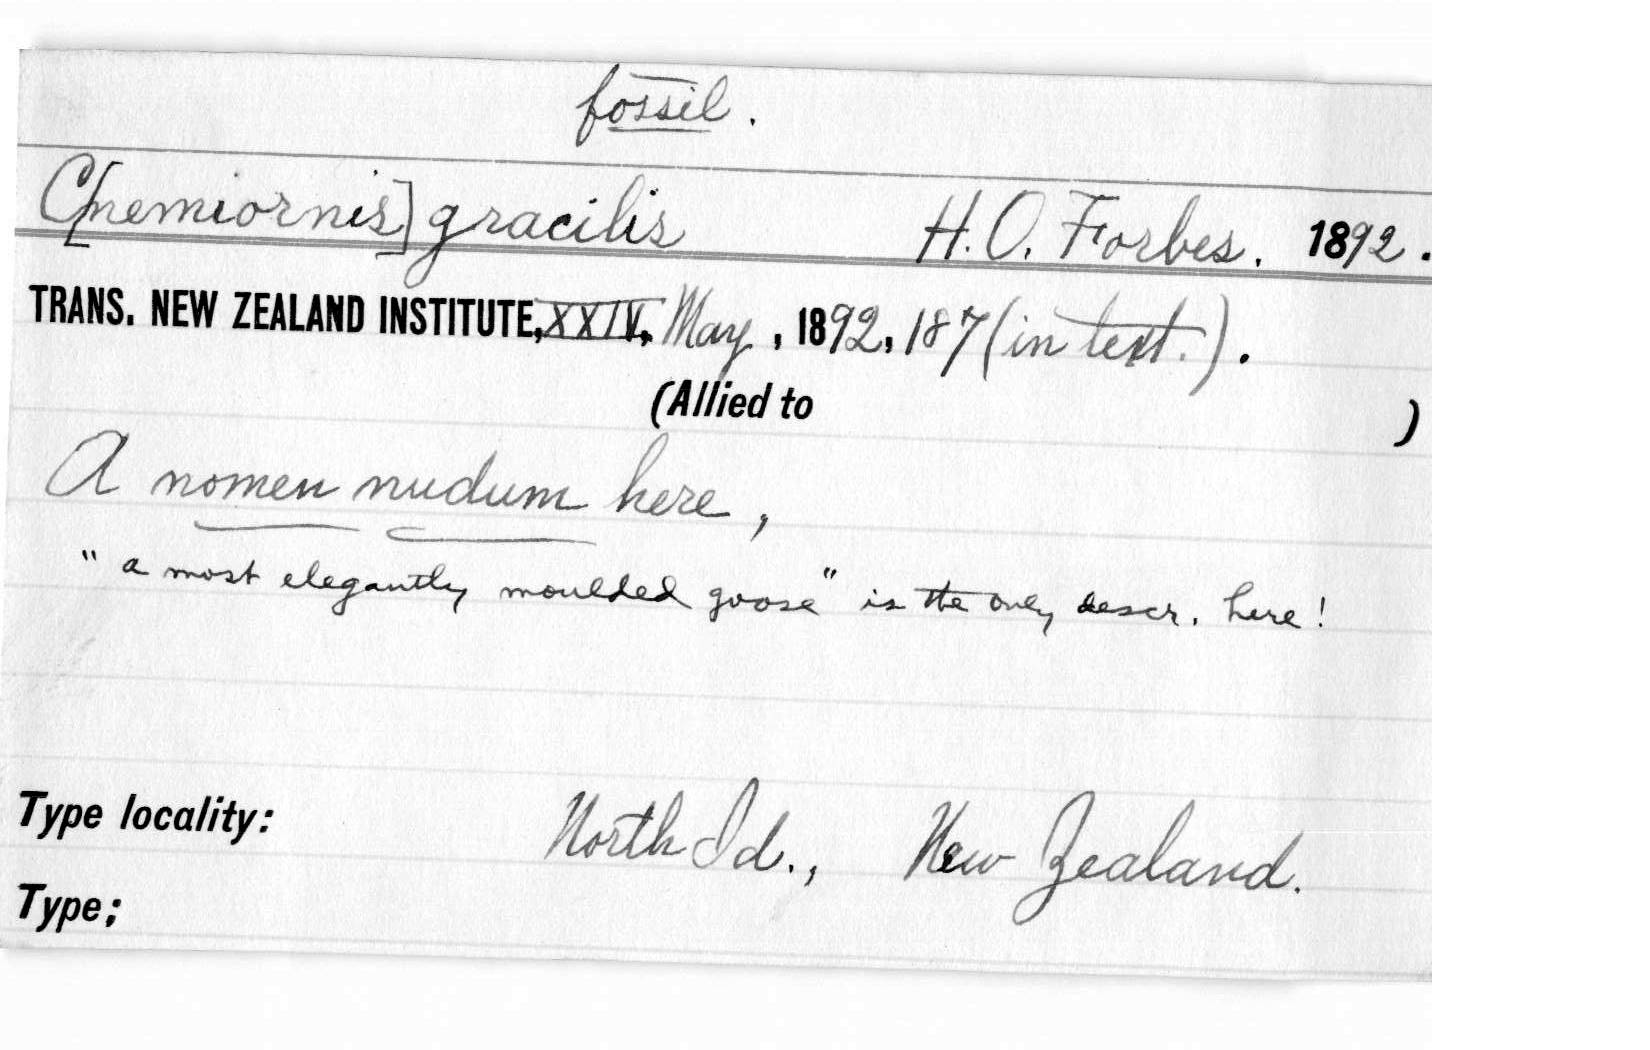 fossil.
C[nemiornis] gracilis H. O. Forbes. 1892.
TRANS. NEW ZEALAND INSTITUTE, XXIV, May, 1892, 187 (in text.).
(Allied to )
A nomen nudum here,
"a most elegantly moulded goose" is the only descr. here!
Type locality: North Id., New Zealand.
Type;